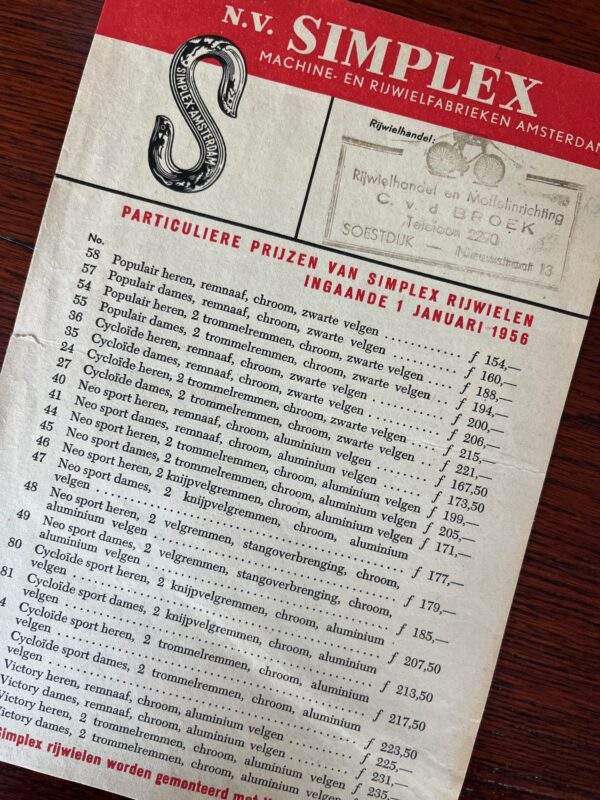 N.V. SIMPLEX
MACHINE- EN RIJWIELFABRIEKEN AMSTERDAM
SIMPLEX AMSTERDAM
Rijwielhandel:
Rijwielhandel en Moffelinrichting
C. v. d. BROEK
Telefoon 2290
SOESTDIJK — 13
PARTICULIERE PRIJZEN VAN SIMPLEX RIJWIELEN
INGAANDE 1 JANUARI 1956
No.
58 Populair heren, remnaaf, chroom, zwarte velgen f 154,—
57 Populair dames, remnaaf, chroom, zwarte velgen f 160,—
54 Populair heren, 2 trommelremmen, chroom, zwarte velgen f 188,—
55 Populair dames, 2 trommelremmen, chroom, zwarte velgen f 194,—
36 Cycloïde heren, remnaaf, chroom, zwarte velgen f 200,—
35 Cycloïde dames, remnaaf, chroom, zwarte velgen f 206,—
24 Cycloïde heren, 2 trommelremmen, chroom, zwarte velgen f 215,—
27 Cycloïde dames, 2 trommelremmen, chroom, zwarte velgen f 221,—
40 Neo sport heren, remnaaf, chroom, aluminium velgen f 167,50
41 Neo sport dames, remnaaf, chroom, aluminium velgen f 173,50
44 Neo sport heren, 2 trommelremmen, chroom, aluminium velgen f 199,—
45 Neo sport dames, 2 trommelremmen, chroom, aluminium velgen f 205,—
46 Neo sport heren, 2 knijpvelgremmen, chroom, aluminium velgen f 171,—
47 Neo sport dames, 2 knijpvelgremmen, chroom, aluminium
velgen f 177,—
48 Neo sport heren, 2 velgremmen, stangoverbrenging, chroom,
aluminium velgen f 179,—
49 Neo sport dames, 2 velgremmen, stangoverbrenging, chroom,
aluminium velgen f 185,—
80 Cycloïde sport heren, 2 knijpvelgremmen, chroom, aluminium
velgen f 207,50
81 Cycloïde sport dames, 2 knijpvelgremmen, chroom, aluminium
velgen f 213,50
4 Cycloïde sport heren, 2 trommelremmen, chroom, aluminium
velgen f 217,50
Cycloïde sport dames, 2 trommelremmen, chroom, aluminium
velgen f 223,50
Victory heren, remnaaf, chroom, aluminium velgen f 225,—
Victory dames, remnaaf, chroom, aluminium velgen f 231,—
Victory heren, 2 trommelremmen, chroom, aluminium velgen f 235,—
Victory dames, 2 trommelremmen, chroom, aluminium velgen
Simplex rijwielen worden gemonteerd met